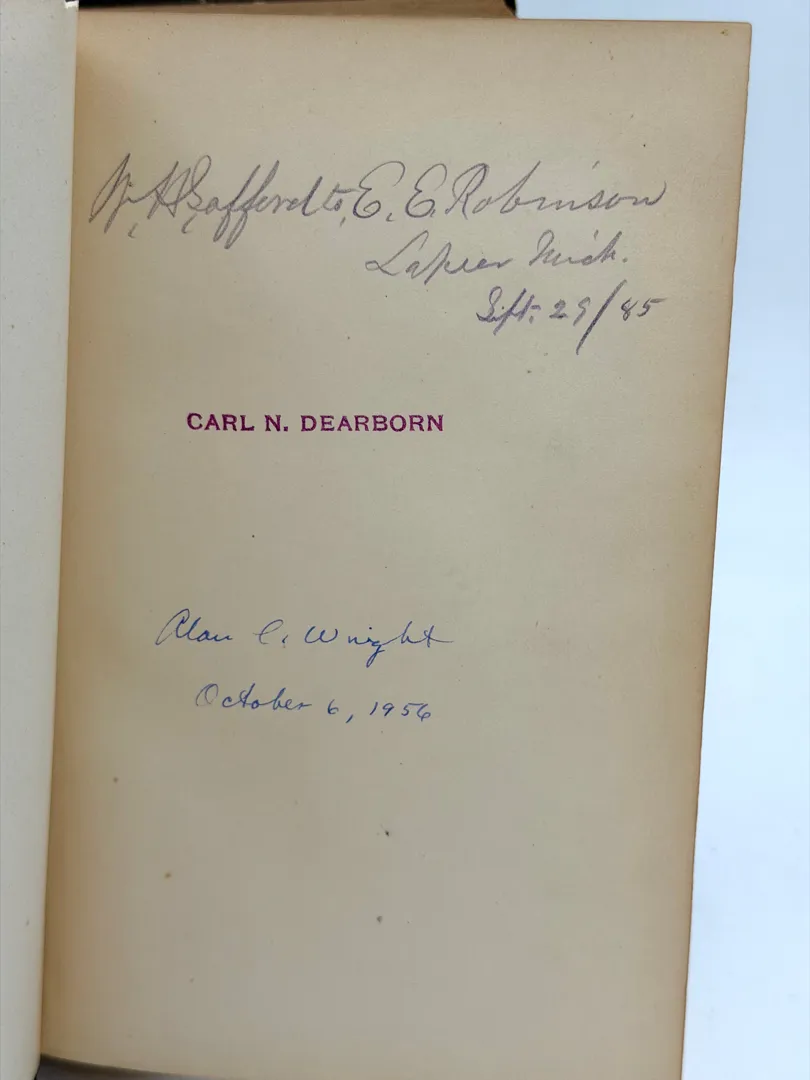 W. H. Safford to, E. E. Robinson
Lapeer Mich.
Sept. 29/85
CARL N. DEARBORN
Alan C. Wright
October 6, 1956